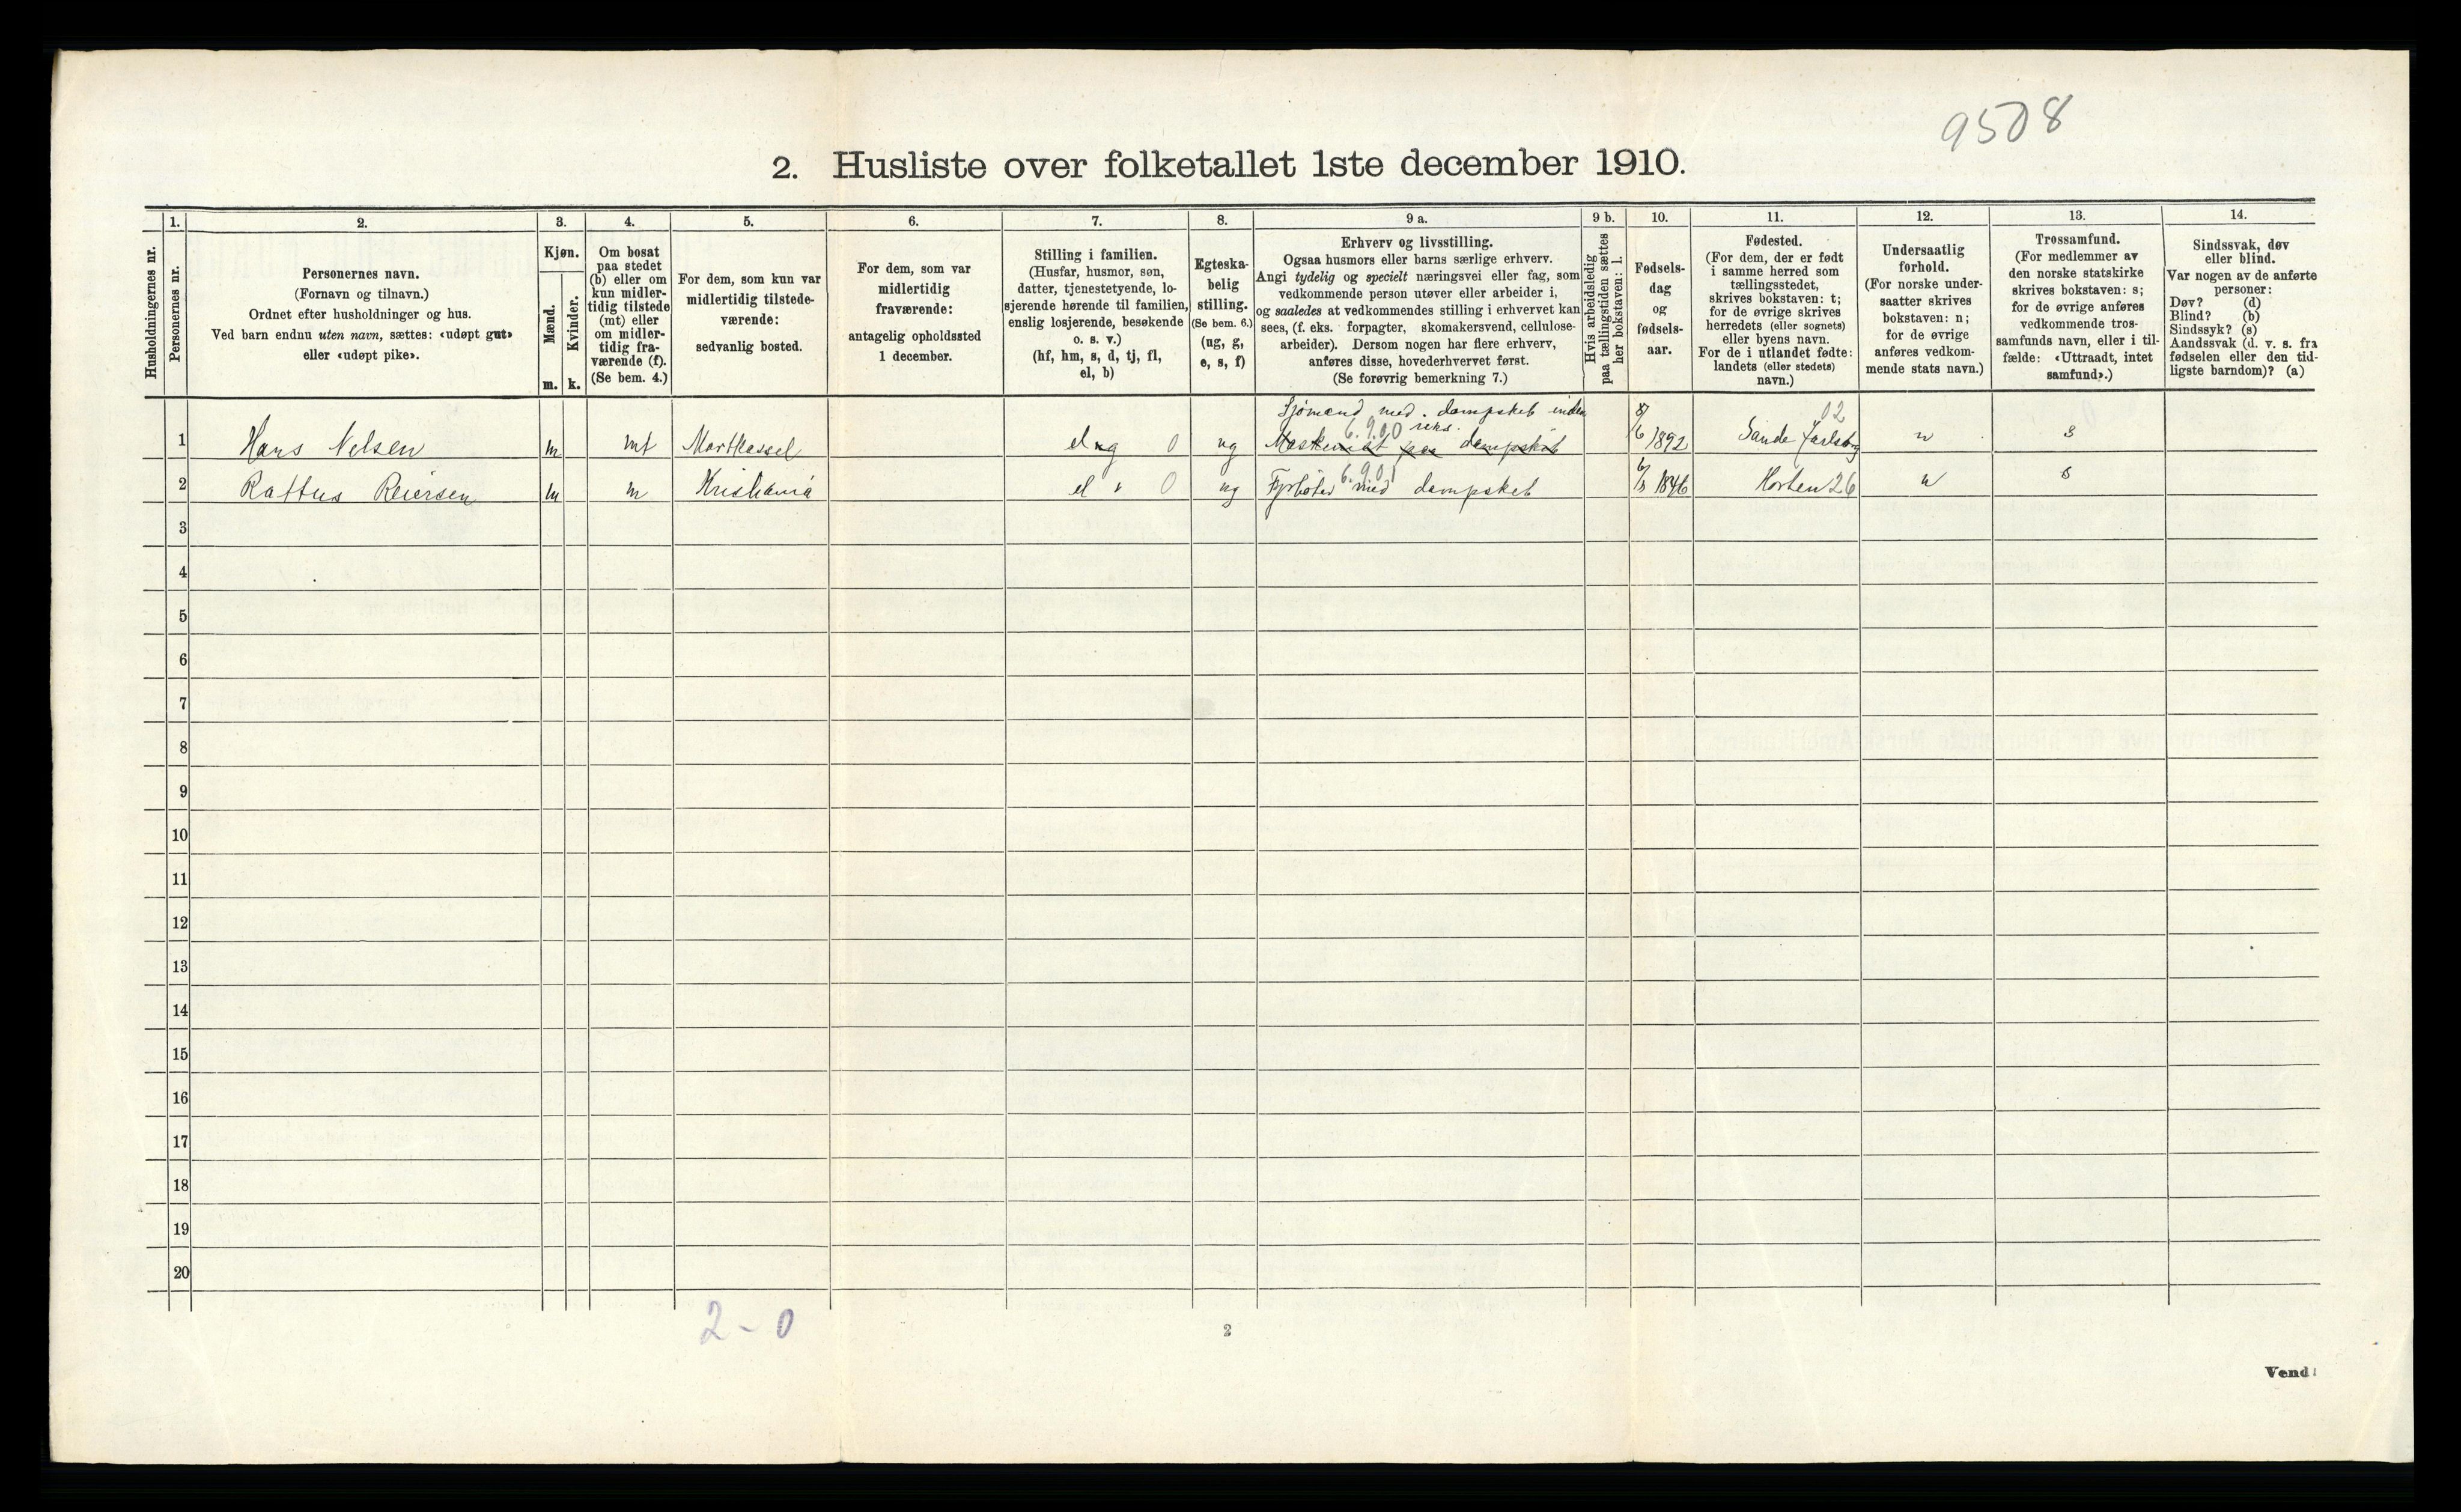 9508
2. Husliste over folketallet 1ste december 1910.
Husholdningernes nr.
1.
Personernes nr.
2.
Personernes navn.
(Fornavn og tilnavn.)
Ordnet efter husholdninger og hus.
Ved barn endnu uten navn, sættes: «udøpt gut»
eller «udøpt pike».
3.
Kjøn.
Mænd.
Kvinder.
m. k.
4.
Om bosat
paa stedet
(b) eller om
kun midler-
tidig tilstede
(mt) eller
om midler-
tidig fra-
værende (f).
(Se bem. 4.)
5.
For dem, som kun var
midlertidig tilstede-
værende:
sedvanlig bosted.
6.
For dem, som var
midlertidig
fraværende:
antagelig opholdssted
1 december.
7.
Stilling i familien.
(Husfar, husmor, søn,
datter, tjenestetyende, lo-
sjerende hørende til familien,
enslig losjerende, besøkende
o. s. v.)
(hf, hm, s, d, tj, fl,
el, b)
8.
Egteska-
belig
stilling.
(Se bem. 6.)
(ug, g,
e, s, f)
9 a.
Erhverv og livsstilling.
Ogsaa husmors eller barns særlige erhverv.
Angi tydelig og specielt næringsvei eller fag, som
vedkommende person utøver eller arbeider i,
og saaledes at vedkommendes stilling i erhvervet kan
sees, (f. eks. forpagter, skomakersvend, cellulose-
arbeider). Dersom nogen har flere erhverv,
anføres disse, hovederhvervet først.
(Se forøvrig bemerkning 7.)
9 b.
Hvis arbeidsledig
paa tællingstiden sættes
her bokstaven: l.
10.
Fødsels-
dag
og
fødsels-
aar.
11.
Fødested.
(For dem, der er født
i samme herred som
tællingsstedet,
skrives bokstaven: t;
for de øvrige skrives
herredets (eller sognets)
eller byens navn.
For de i utlandet fødte:
landets (eller stedets)
navn.)
12.
Undersaatlig
forhold.
(For norske under-
saatter skrives
bokstaven: n;
for de øvrige
anføres vedkom-
mende stats navn.)
13.
Trossamfund.
(For medlemmer av
den norske statskirke
skrives bokstaven: s;
for de øvrige anføres
vedkommende tros-
samfunds navn, eller i til-
fælde: «Uttraadt, intet
samfund».)
14.
Sindssvak, døv
eller blind.
Var nogen av de anførte
personer:
Døv? (d)
Blind? (b)
Sindssyk? (s)
Aandssvak (d. v. s. fra
fødselen eller den tid-
ligste barndom)? (a)
Sjømand med. dampskib inden 02
6.9.00 riks.
1 Hans Nelsen m mt el 0 ug Maskenist paa dampskib 1892 Sande Jarlsbg n s
6.901
2 Raftus Reiersen m m Kristiania el " 0 ug Fyrbøter med dampskib 1846 Horten 26 n s
3
4
5
6
7
8
9
10
11
12
13
14
15
16
17
18
19
20
2 - 0
2
Vend!